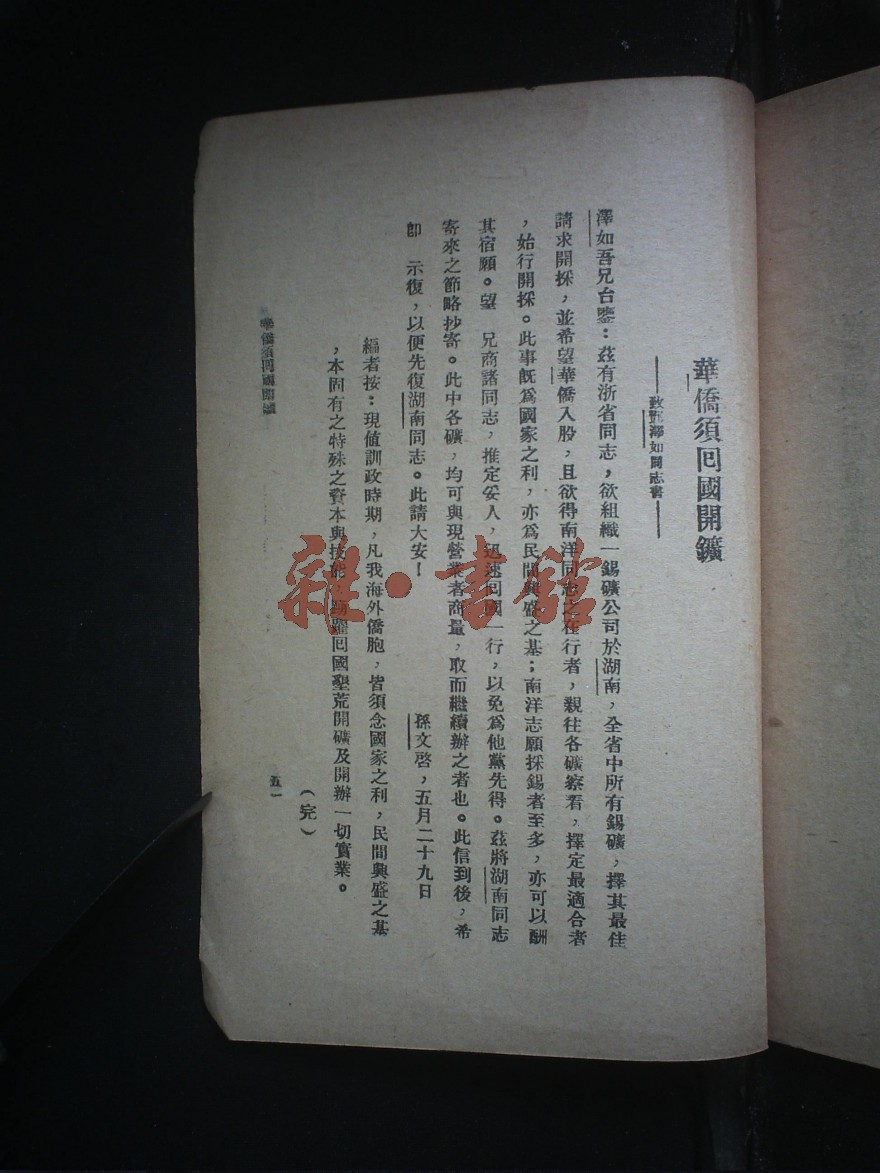 華僑須囘國開鑛
——致鄧澤如同志書——
澤如吾兄台鑒：茲有浙省同志，欲組織一錫礦公司於湖南，全省中所有錫礦，擇其最佳
請求開採，並希望華僑入股，且欲得南洋同志之在行者，親往各礦察看，擇定最適合者
，始行開採。此事旣爲國家之利，亦爲民間興盛之基；南洋志願採錫者至多，亦可以酬
其宿願。望　兄商諸同志，推定妥人，迅速囘國一行，以免爲他黨先得。茲將湖南同志
寄來之節略抄寄。此中各礦，均可與現營業者商量，取而繼續辦之者也。此信到後，希
卽　示復，以便先復湖南同志。此請大安！
孫文啓，五月二十九日
編者按：現値訓政時期，凡我海外僑胞，皆須念國家之利，民間興盛之基
，本固有之特殊之資本與技能，踴躍囘國墾荒開礦及開辦一切實業。
（完）
華僑須囘國開鑛
五一
雜·書館